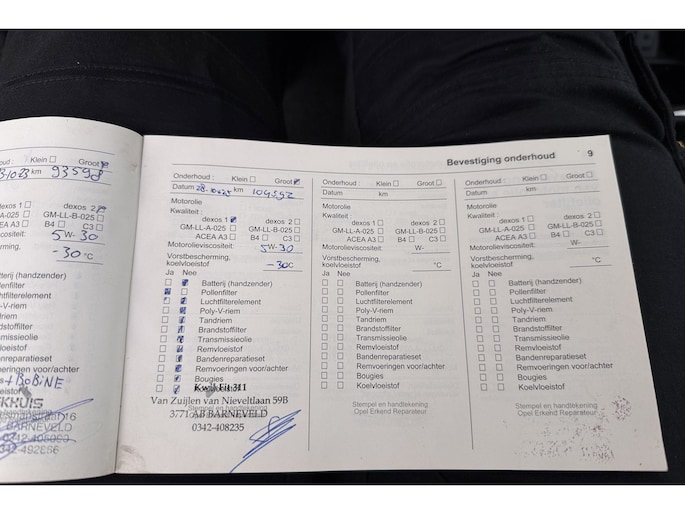 Bevestiging onderhoud 9
Klein ☐ Groot
km 93598
dexos 1 ☐ dexos 2
GM-LL-B-025 ☐
ACEA A3 ☐ B4 ☐ C3 ☐
5W-30
-30 °C
Batterij (handzender)
Pollenfilter
Luchtfilterelement
Poly-V-riem
Tandriem
Brandstoffilter
Transmissieolie
Remvloeistof
Bandenreparatieset
Remvoeringen voor/achter
+BOBINE
Onderhoud : Klein ☐ Groot
Datum km 104592
Motorolie
Kwaliteit :
dexos 1 dexos 2 ☐
GM-LL-A-025 ☐ GM-LL-B-025 ☐
ACEA A3 ☐ B4 ☐ C3 ☐
Motorolieviscositeit: 5W-30
Vorstbescherming,
koelvloeistof -30C
Ja Nee
Batterij (handzender)
Pollenfilter
Luchtfilterelement
Poly-V-riem
Tandriem
Brandstoffilter
Transmissieolie
Remvloeistof
Bandenreparatieset
Remvoeringen voor/achter
Bougies
Kwik Fit 311
Van Zuijlen van Nieveltlaan 59B
Stempel en handtekening
3771 AB BARNEVELD
0342-408235
Onderhoud : Klein ☐ Groot ☐
Datum km
Motorolie
Kwaliteit :
dexos 1 ☐ dexos 2 ☐
GM-LL-A-025 ☐ GM-LL-B-025 ☐
ACEA A3 ☐ B4 ☐ C3 ☐
Motorolieviscositeit: W-
Vorstbescherming,
koelvloeistof °C
Ja Nee
☐ ☐ Batterij (handzender)
☐ ☐ Pollenfilter
☐ ☐ Luchtfilterelement
☐ ☐ Poly-V-riem
☐ ☐ Tandriem
☐ ☐ Brandstoffilter
☐ ☐ Transmissieolie
☐ ☐ Remvloeistof
☐ ☐ Bandenreparatieset
☐ ☐ Remvoeringen voor/achter
☐ ☐ Bougies
☐ ☐ Koelvloeistof
Stempel en handtekening
Opel Erkend Reparateur
Onderhoud : Klein ☐ Groot ☐
Datum km
Motorolie
Kwaliteit :
dexos 1 ☐ dexos 2 ☐
GM-LL-A-025 ☐ GM-LL-B-025 ☐
ACEA A3 ☐ B4 ☐ C3 ☐
Motorolieviscositeit: W-
Vorstbescherming,
koelvloeistof °C
Ja Nee
☐ ☐ Batterij (handzender)
☐ ☐ Pollenfilter
☐ ☐ Luchtfilterelement
☐ ☐ Poly-V-riem
☐ ☐ Tandriem
☐ ☐ Brandstoffilter
☐ ☐ Transmissieolie
☐ ☐ Remvloeistof
☐ ☐ Bandenreparatieset
☐ ☐ Remvoeringen voor/achter
☐ ☐ Bougies
☐ ☐ Koelvloeistof
Stempel en handtekening
Opel Erkend Reparateur